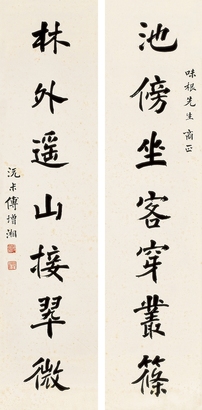 味根先生商正
池傍坐客穿叢篠
林外遥山接翠微
沅未傅增湘